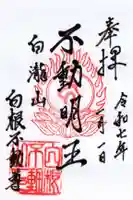 奉拝
令和七年
月一日
不動明王
白瀧山
白根不動尊